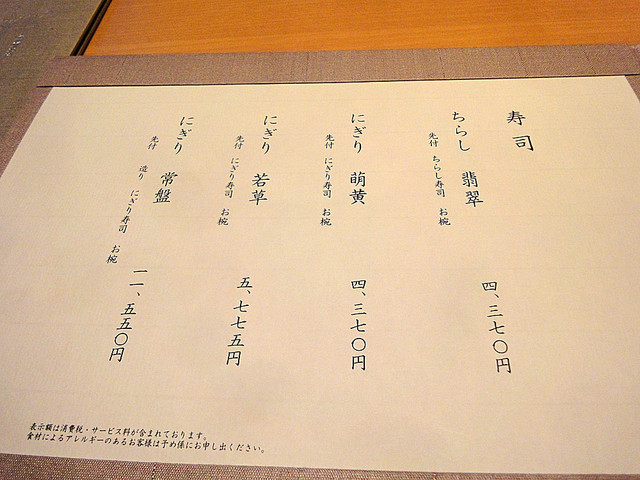 寿司
ちらし 翡翠
先付 ちらし寿司 お椀
四、三七〇円
にぎり 萌黄
先付 にぎり寿司 お椀
四、三七〇円
にぎり 若草
先付 にぎり寿司 お椀
五、七七五円
にぎり 常盤
先付 造り にぎり寿司 お椀
一一、五五〇円
表示額は消費税・サービス料が含まれております。
食材によるアレルギーのあるお客様は予め係にお申し出ください。